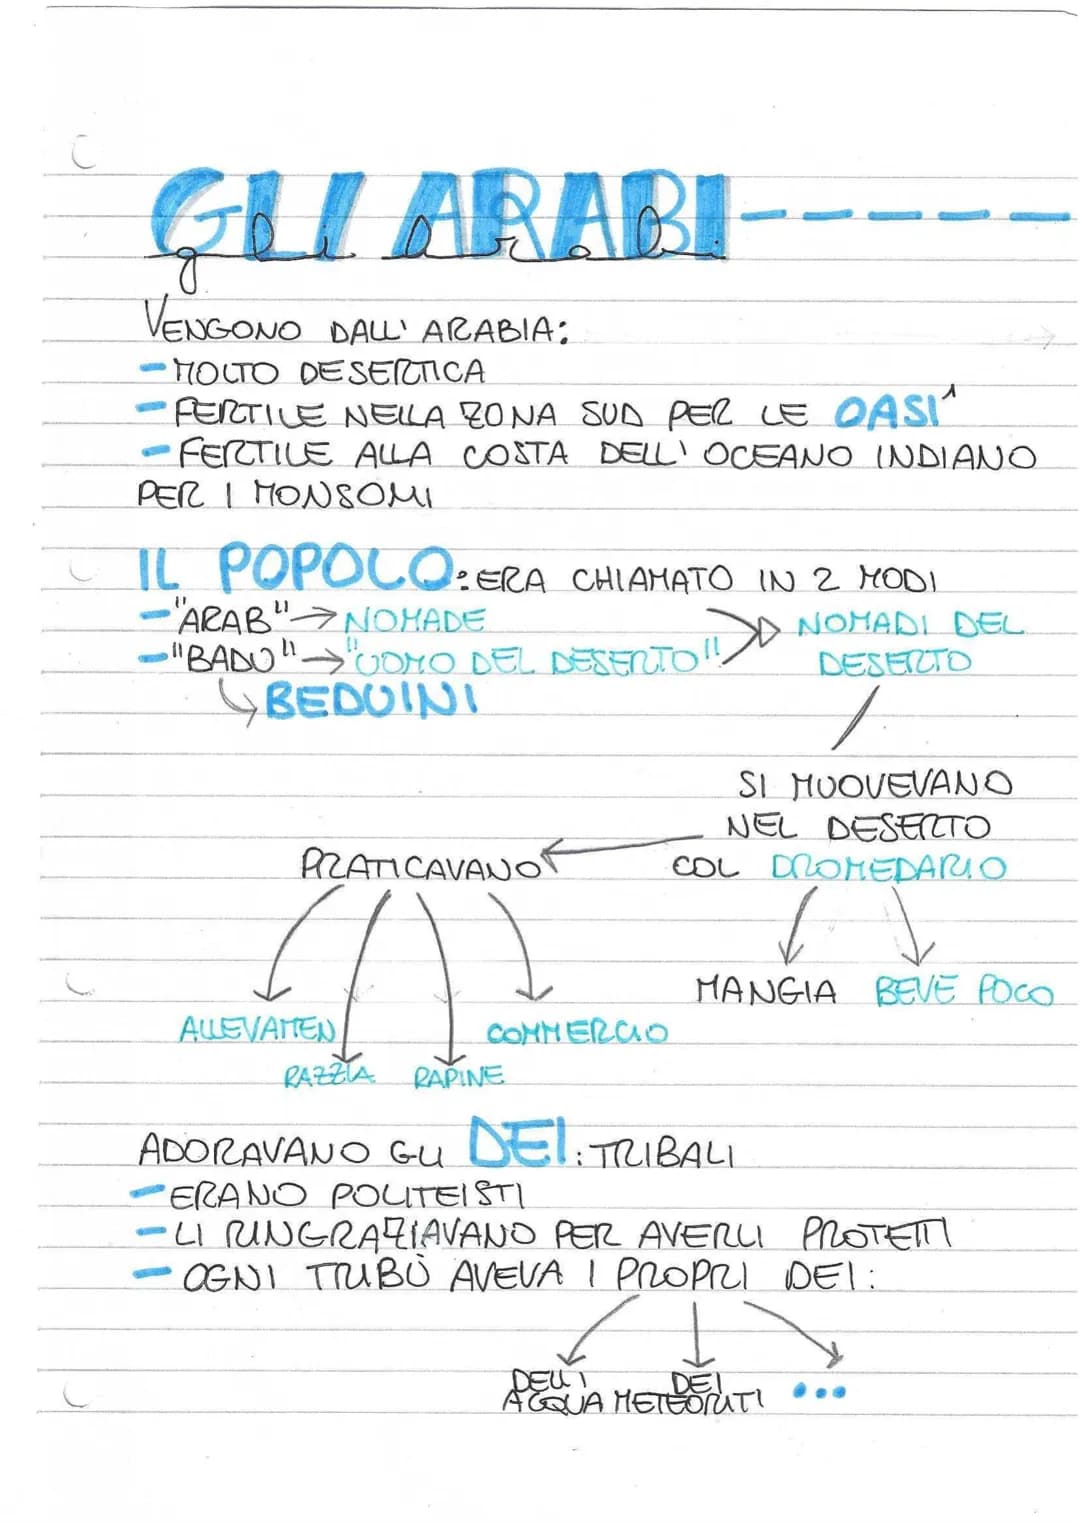 GLI ARABI
gli arabi
VENGONO DALL'ARABIA:
- MOLTO DESERTICA
- FERTILE NELLA ZONA SUD PER LE OASI¹
- FERTILE ALLA COSTA DELL'OCEANO INDIANO
PER I MONSOMI
IL POPOLO: ERA CHIAMATO IN 2 MODI
- "ARAB" → NOMADE
- "BADU" → "UOMO DEL DESERTO"
NOMADI DEL
DESERTO
↳ BEDUINI
SI MUOVEVANO
NEL DESERTO
COL DROMEDARIO
PRATICAVANO
MANGIA BEVE POCO
ALLEVAMEN
COMMERCIO
RAZZIA RAPINE
ADORAVANO GLI DEI: TRIBALI
- ERANO POLITEISTI
- LI RINGRAZIAVANO PER AVERLI PROTETTI
- OGNI TRIBÙ AVEVA I PROPRI DEI:
DELL'
ACQUA
DEI
METEORITI
...